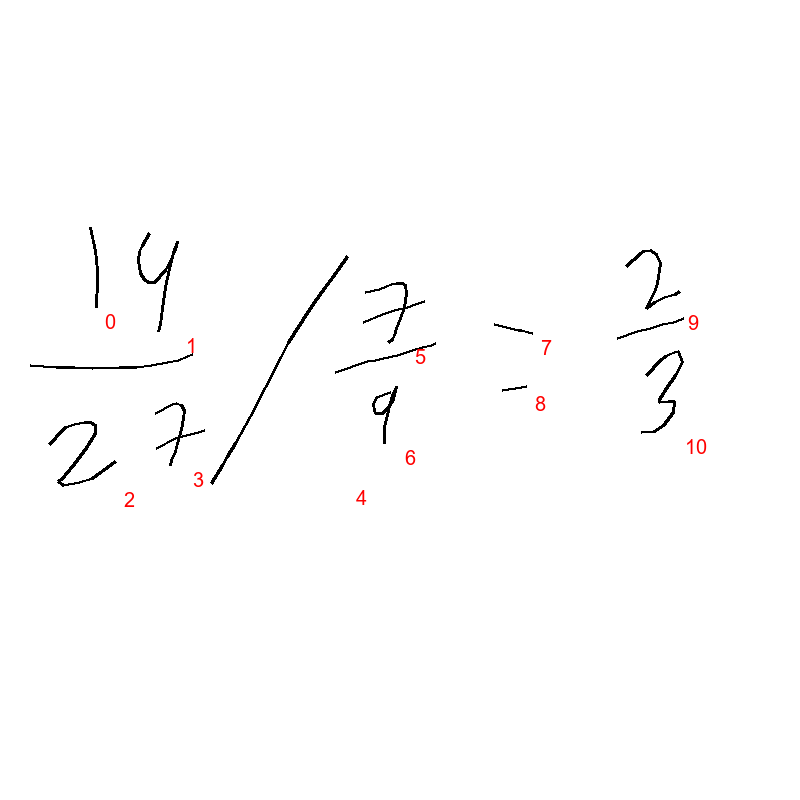 14/27 / 7/9 = 2/3
0 1 2 3 4 5 6 7 8 9 10